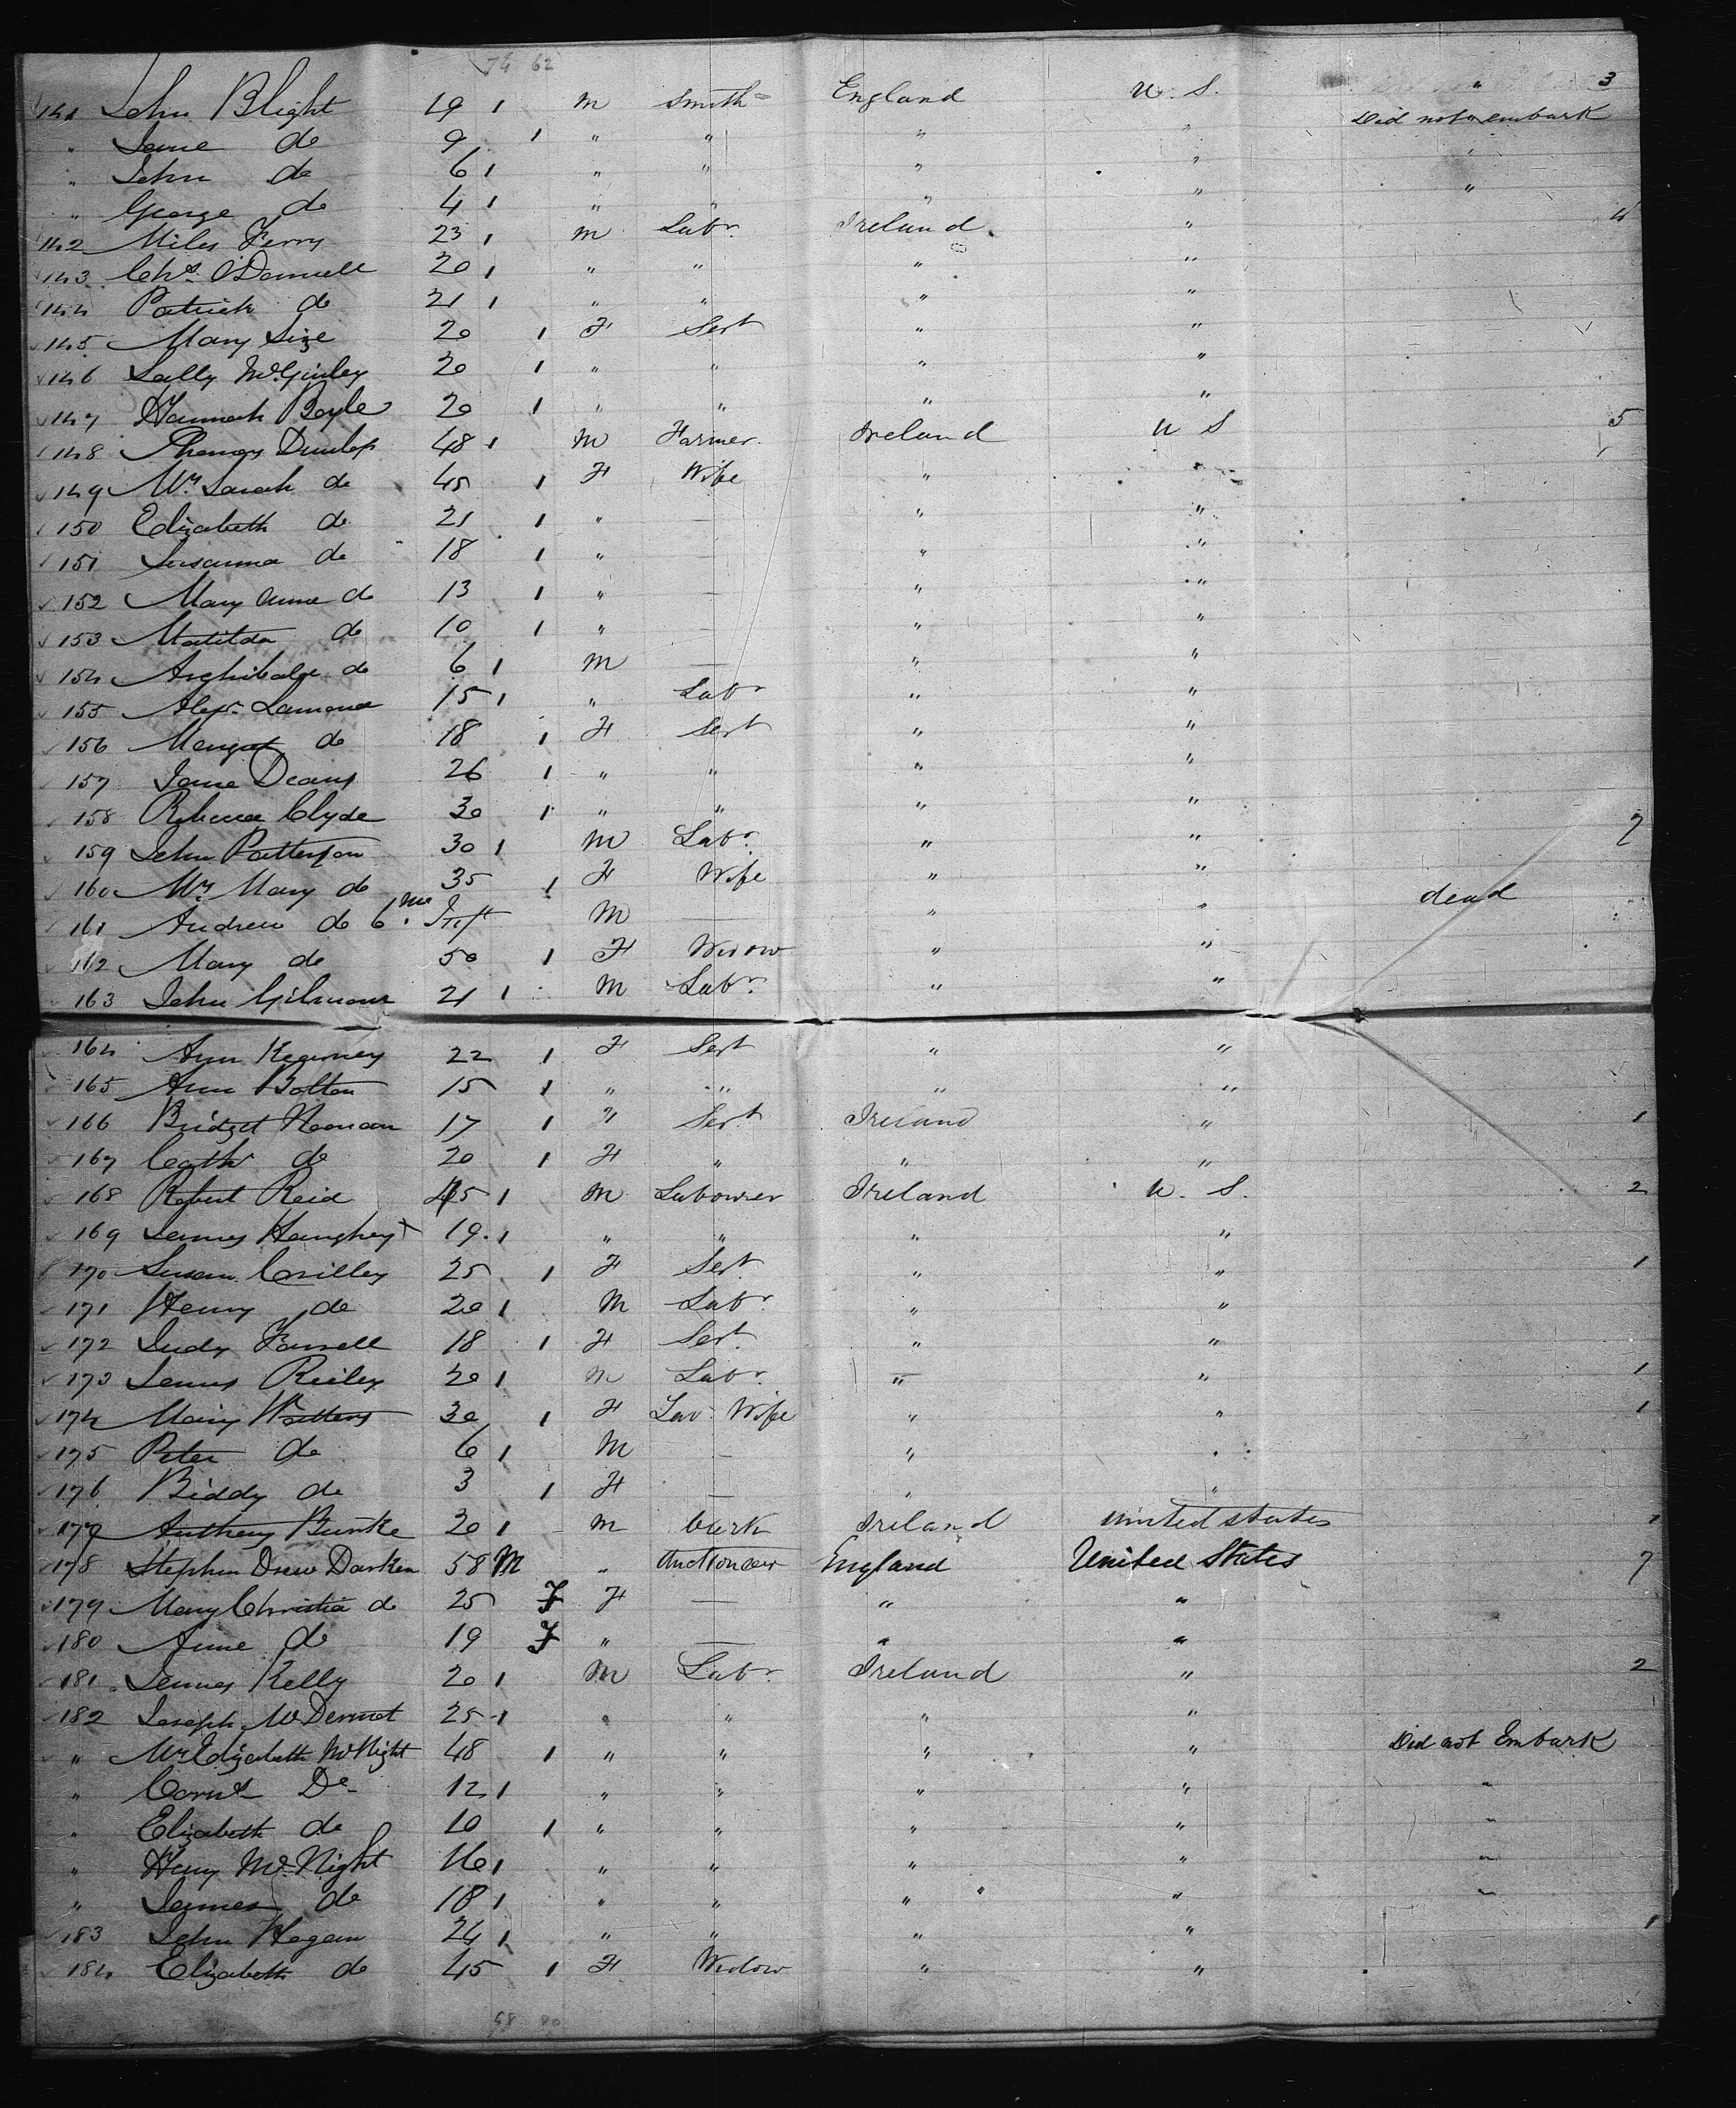 74 62
141 John Blight 19 1 m Smith England U. S. " 3
" Jane do 9 1 " " " " Did not embark
" John do 6 1 " " " " "
" George do 4 1 " " " " "
142 Miles Ferry 23 1 m Labr. Ireland " 4
143 Chs. O'Donnell 20 1 " " " "
144 Patrick do 21 1 " " " "
145 Mary Size 20 1 F Sert " "
146 Sally McGinley 20 1 " " " "
147 Hannah Boyle 20 1 " " " "
148 Thomas Dunlop 48 1 m Farmer Ireland U S 5
149 Mrs Sarah do 45 1 F Wife " "
150 Elizabeth do 21 1 " — " "
151 Susanna do 18 1 " — " "
152 Mary Anne do 13 1 " — " "
153 Matilda do 10 1 " — " "
154 Archibald do 6 1 m — " "
155 Alexr. Lamond 15 1 " Labr " "
156 Margret do 18 1 F Sert " "
157 Jane Deans 26 1 " " " "
158 Rebecca Clyde 30 1 " " " "
159 John Patterson 30 1 m Labr. " " 7
160 Mrs Mary do 35 1 F Wife " "
161 Andrew do 6 Mo Inft M — " " dead
162 Mary do 50 1 F Widow " "
163 John Gilmour 21 1 m Labr. " "
164 Ann Kearney 22 1 F Sert " "
165 Ann Bolton 15 1 " " " "
166 Bridget Noonan 17 1 F Sert Ireland " 1
167 Cathe do 20 1 F " " "
168 Robert Reid 45 1 m Labourer Ireland U. S. 2
169 James Haughey 19 1 " " " "
170 Susan Crilley 25 1 F Sert " " 1
171 Henry do 20 1 M Labr. " "
172 Judy Farrell 18 1 F Sert. " "
173 James Reiley 20 1 m Labr. " " 1
174 Mary Watters 30 1 F Lab. Wife " " 1
175 Peter do 6 1 M — " "
176 Biddy do 3 1 F — " "
177 Anthony Burke 20 1 m Clerk Ireland United States 1
178 Stephen Drew Darken 58 M " Auctioneer England United States 7
179 Mary Christia do 25 F F — " "
180 Anne do 19 F " — " "
181 James Kelly 20 1 m Labr. Ireland " 2
182 Joseph McDermot 25 1 " " " "
" Mrs Elizabeth McNight 48 1 " " " " Did not Embark
" Cornl Do 12 1 " " " " "
" Elizabeth do 10 1 " " " " "
" Henry McNight 16 1 " " " " "
" James do 18 1 " " " " "
183 John Hogan 24 1 " " " " 1
184 Elizabeth do 45 1 F Widow " "
68 40